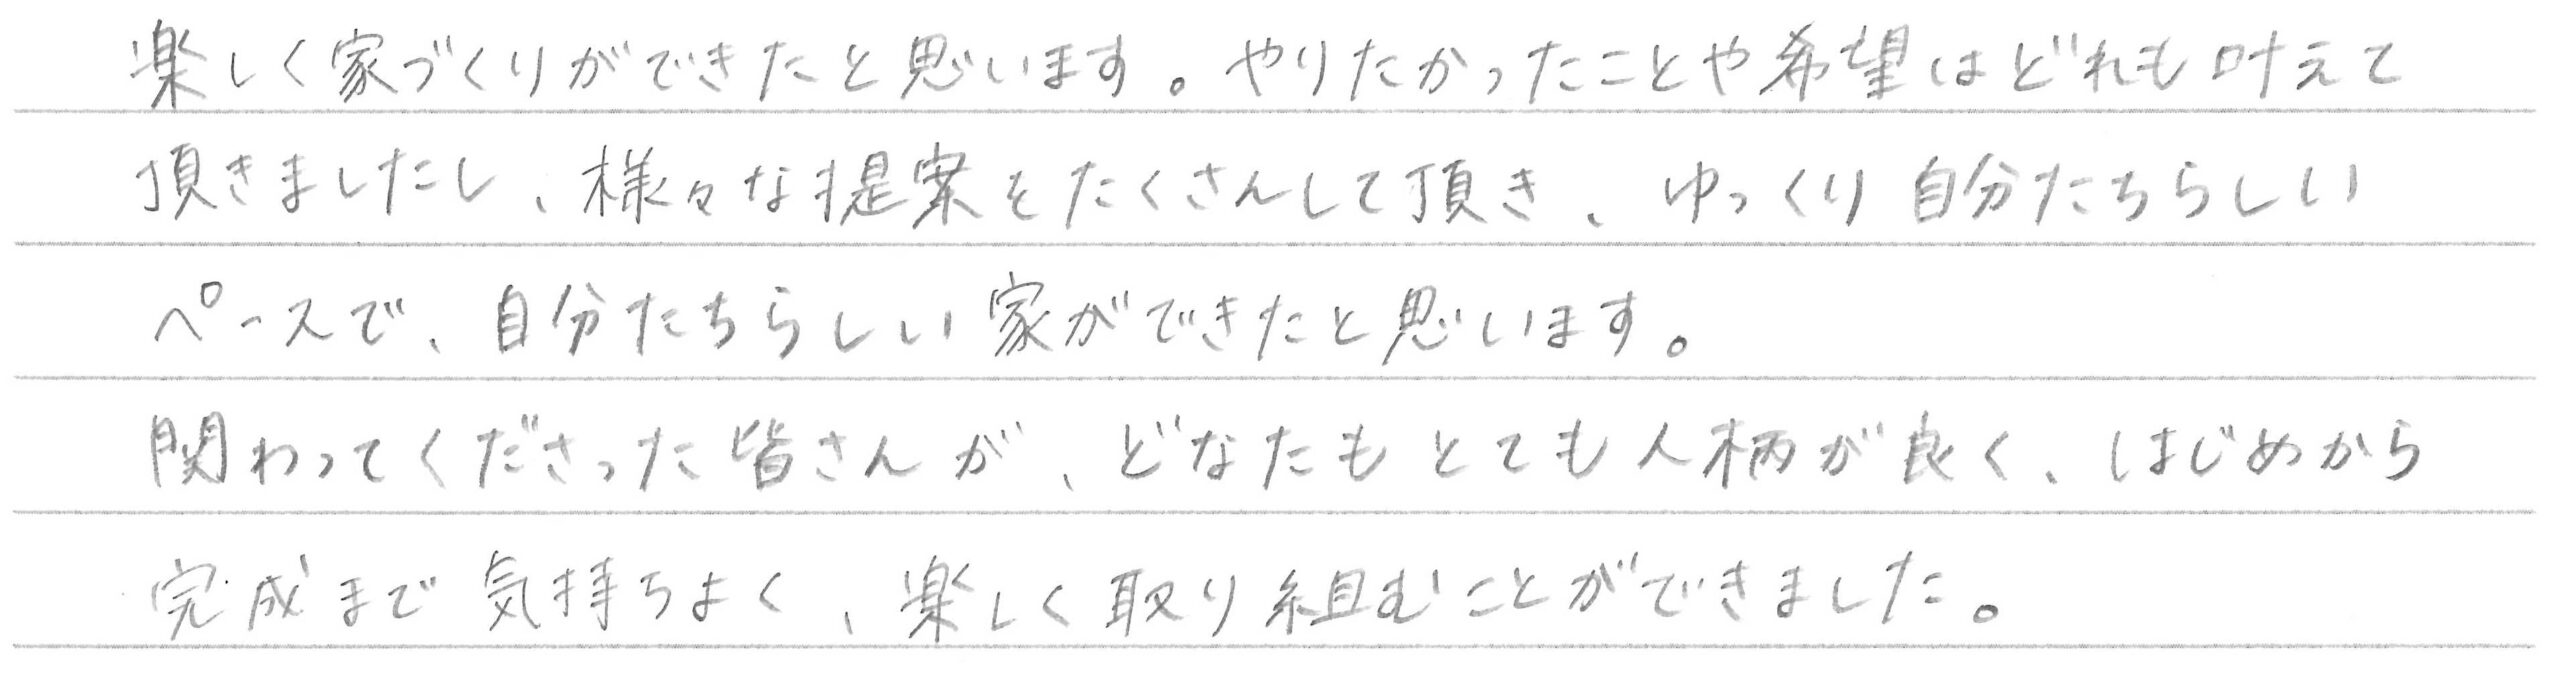 楽しく家づくりができたと思います。やりたかったことや希望はどれも叶えて
頂きましたし、様々な提案をたくさんして頂き、ゆっくり自分たちらしい
ペースで、自分たちらしい家ができたと思います。
関わってくださった皆さんが、どなたもとても人柄が良く、はじめから
完成まで気持ちよく、楽しく取り組むことができました。